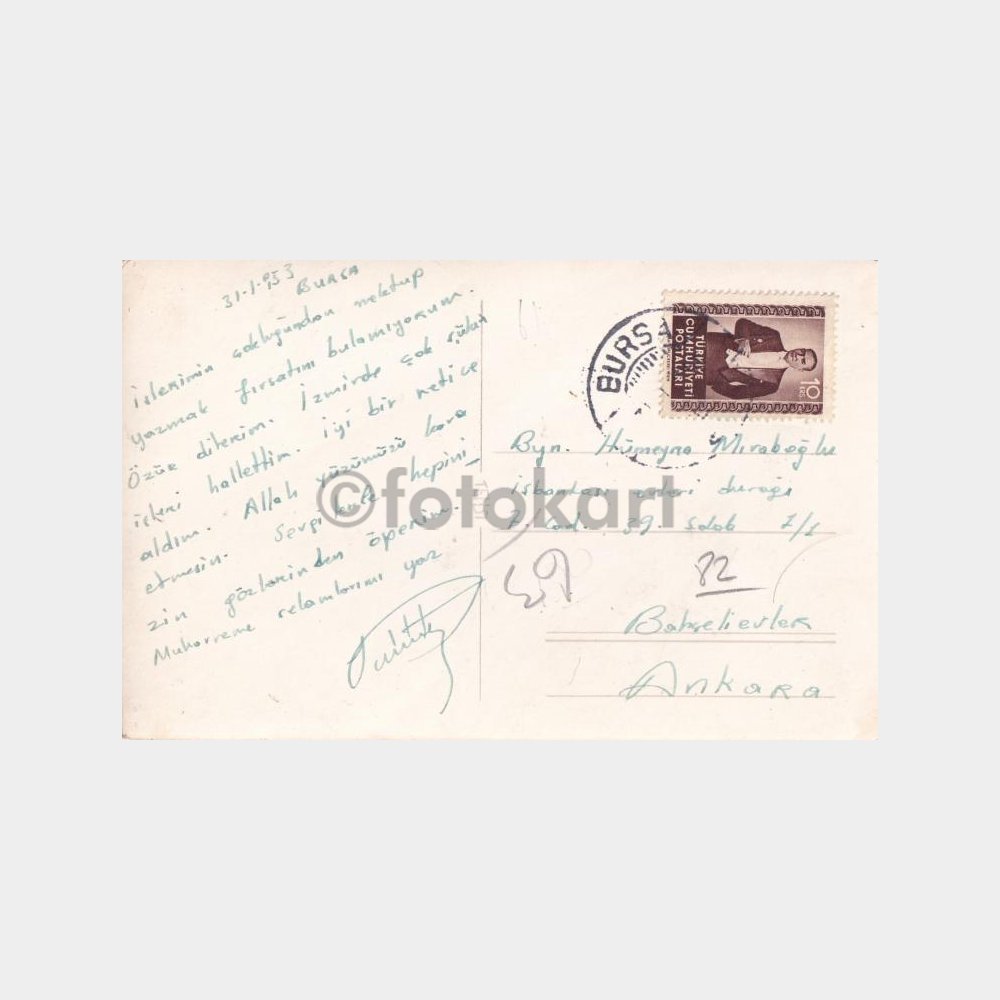 31-1-953
BURSA
İşlerimin çokluğundan mektup
yazmak fırsatını bulamıyorum
Özür dilerim. İzmirde çok
işleri hallettim. İyi bir netice
aldım. Allah yüzümüzü kara
etmesin. Sevgi ile hepini_
zin gözlerinden öperim.
Muharreme selamlarımı yaz
BURSA
TÜRKİYE
CUMHURİYETİ
POSTALARI
10
Byn. Hümeyra
evleri durağı
7/1
59
82
Bahçelievler
Ankara
©fotokart